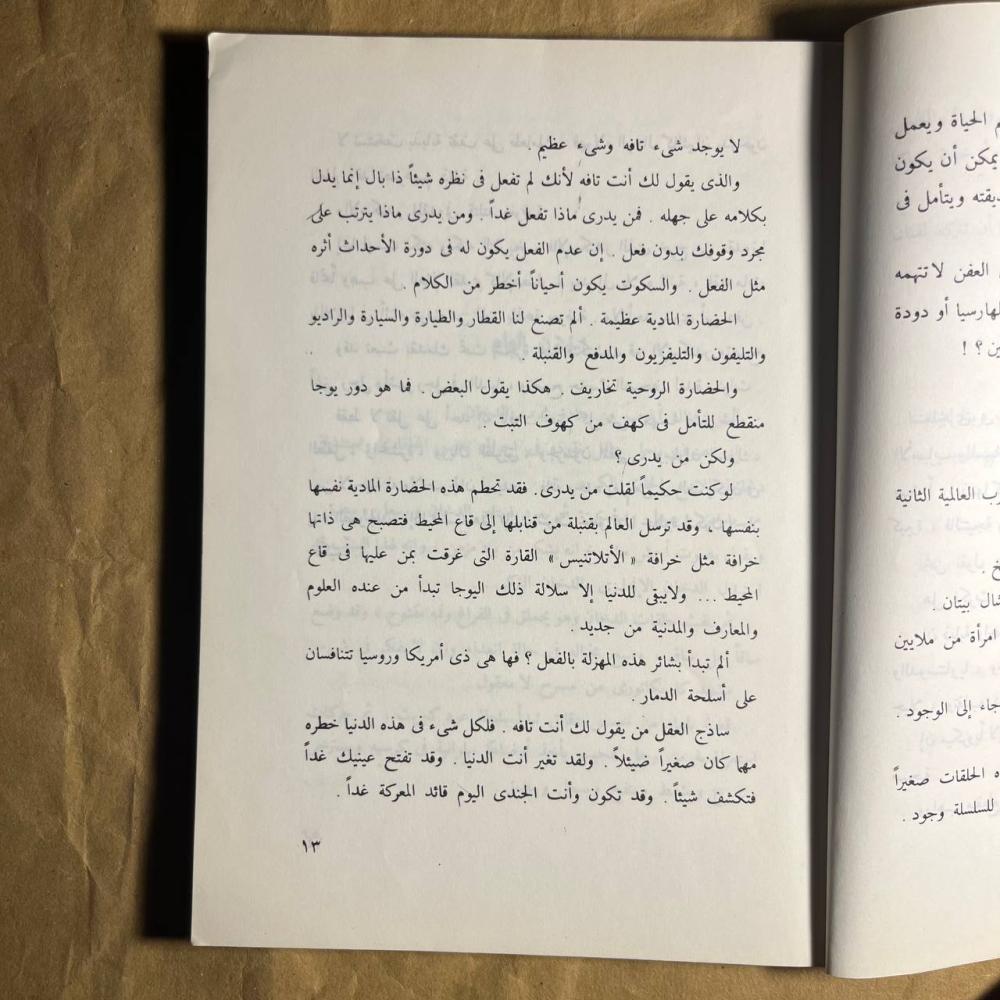 م الحياة ويعمل
يمكن أن يكون
ديقته ويتأمل فى
العفن لا تتهمه
لهارسيا أو دودة
ين ؟ !
رب العالمية الثانية
شال بيتان .
امرأة من ملايين
جاء إلى الوجود .
ه الحلقات صغيراً
للسلسلة وجود .
لا يوجد شىء تافه وشىء عظيم .
والذى يقول لك أنت تافه لأنك لم تفعل فى نظره شيئاً ذا بال إنما يدل
بكلامه على جهله . فمن يدرى ماذا تفعل غداً . ومن يدرى ماذا يترتب على
مجرد وقوفك بدون فعل . إن عدم الفعل يكون له فى دورة الأحداث أثره
مثل الفعل . والسكوت يكون أحياناً أخطر من الكلام .
الحضارة المادية عظيمة . ألم تصنع لنا القطار والطيارة والسيارة والراديو
والتليفون والتليفزيون والمدفع والقنبلة .
والحضارة الروحية تخاريف . هكذا يقول البعض . فما هو دور يوجا
منقطع للتأمل فى كهف من كهوف التبت .
ولكن من يدرى ؟
لو كنت حكيماً لقلت من يدرى. فقد تحطم هذه الحضارة المادية نفسها
بنفسها ، وقد ترسل العالم بقنبلة من قنابلها إلى قاع المحيط فتصبح هى ذاتها
خرافة مثل خرافة « الأتلاتنيس » القارة التى غرقت بمن عليها فى قاع
المحيط ... ولايبقى للدنيا إلا سلالة ذلك اليوجا تبدأ من عنده العلوم
والمعارف والمدنية من جديد .
ألم تبدأ بشائر هذه المهزلة بالفعل ؟ فها هى ذى أمريكا وروسيا تتنافسان
على أسلحة الدمار .
ساذج العقل من يقول لك أنت تافه . فلكل شىء فى هذه الدنيا خطره
مهما كان صغيراً ضئيلاً . ولقد تغير أنت الدنيا . وقد تفتح عينيك غداً
فتكشف شيئاً . وقد تكون وأنت الجندى اليوم قائد المعركة غداً .
١٣